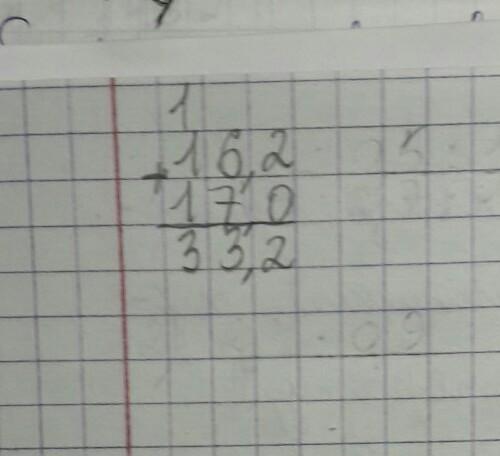 1
+ 16,2
17,0
33,2